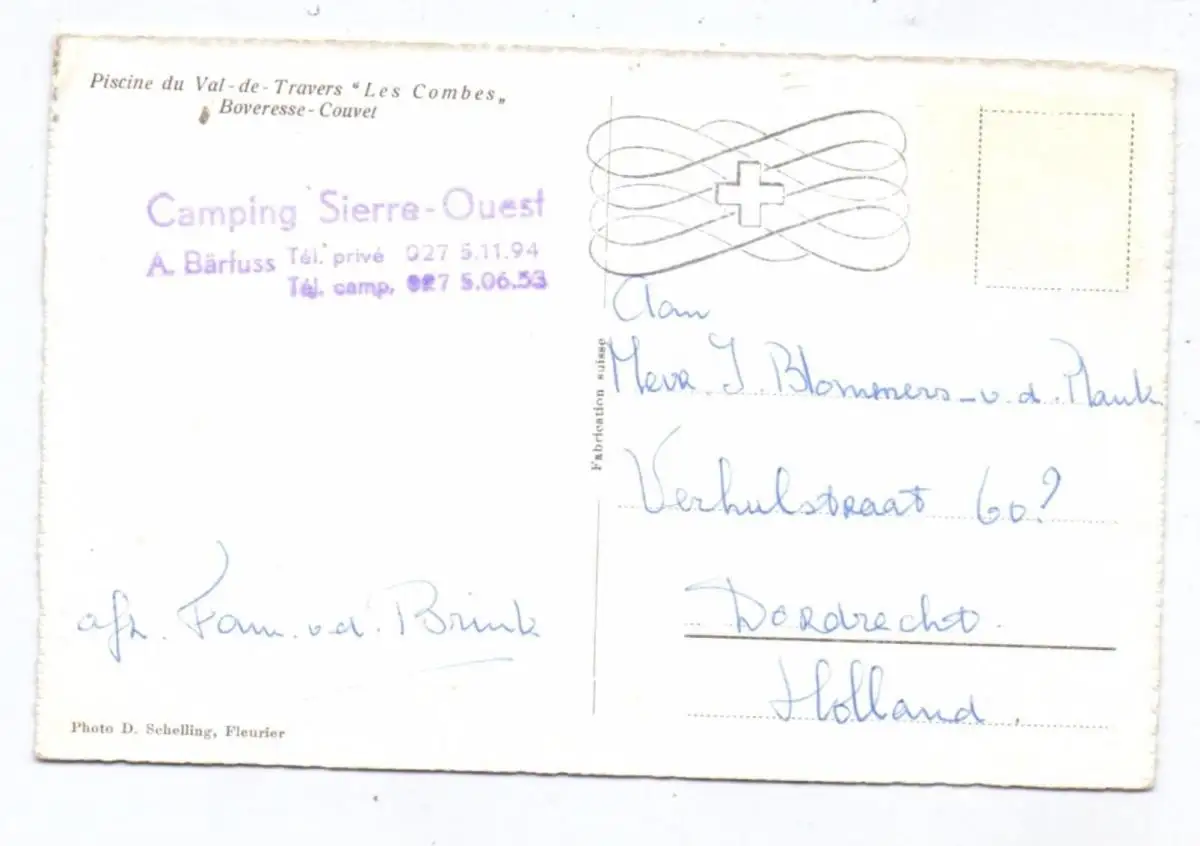 Piscine du Val-de-Travers "Les Combes„
Boveresse-Couvet
Camping Sierre-Ouest
A. Bärfuss Tél. privé 027 5.11.94
Tél. camp. 027 5.06.53
afz. Fam. v.d. Brink
Photo D. Schelling, Fleurier
Fabrication suisse
Aan
Mevr. J. Blommers-v.d. Plank
Verhulstraat 60?
Dordrecht.
Holland.